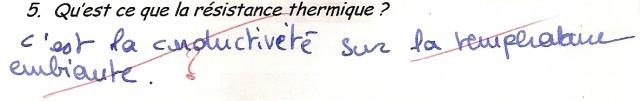 5. Qu'est ce que la résistance thermique ?
c'est la conductiveté sur la température
embiante.